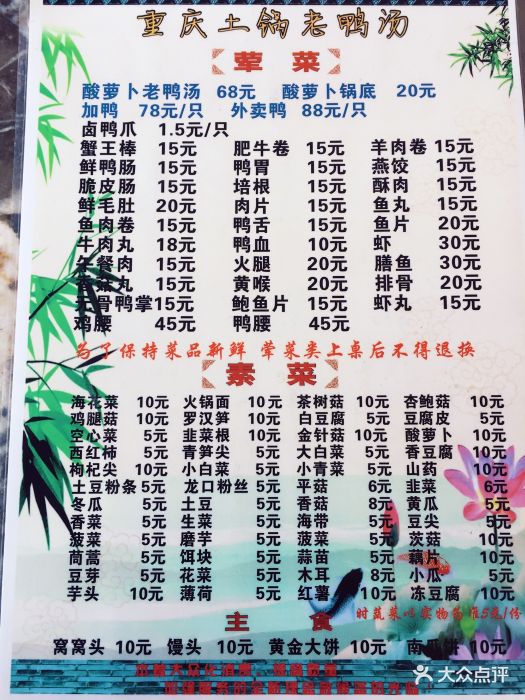 重庆土锅老鸭汤
荤菜
酸萝卜老鸭汤 68元 酸萝卜锅底 20元
加鸭 78元/只 外卖鸭 88元/只
卤鸭爪 1.5元/只
蟹王棒 15元 肥牛卷 15元 羊肉卷 15元
鲜鸭肠 15元 鸭胃 15元 燕饺 15元
脆皮肠 15元 培根 15元 酥肉 15元
鲜毛肚 20元 肉片 15元 鱼丸 15元
鱼肉卷 15元 鸭舌 15元 鱼片 20元
牛肉丸 18元 鸭血 10元 虾 30元
午餐肉 15元 火腿 20元 膳鱼 30元
菇丸 15元 黄喉 20元 排骨 20元
无骨鸭掌 15元 鲍鱼片 15元 虾丸 15元
鸡腰 45元 鸭腰 45元
为了保持菜品新鲜 荤菜类上桌后不得退换
素菜
海花菜 10元 火锅面 10元 茶树菇 10元 杏鲍菇 10元
鸡腿菇 10元 罗汉笋 10元 白豆腐 5元 豆腐皮 5元
空心菜 5元 韭菜根 10元 金针菇 10元 酸萝卜 10元
西红柿 5元 青笋尖 5元 大白菜 5元 香豆腐 10元
枸杞尖 10元 小白菜 5元 小青菜 5元 山药 10元
土豆粉条 5元 龙口粉丝 5元 平菇 6元 韭菜 6元
冬瓜 5元 土豆 5元 香菇 8元 黄瓜 5元
香菜 5元 生菜 5元 海带 5元 豆尖 5元
菠菜 5元 磨芋 5元 菠菜 5元 茨菇 10元
茼蒿 5元 饵块 5元 蒜苗 5元 藕片 10元
豆芽 5元 花菜 5元 木耳 8元 小瓜 5元
芋头 10元 薄荷 5元 红薯 10元 冻豆腐 10元
时蔬菜以实物为准5元/份
主食
窝窝头 10元 馒头 10元 黄金大饼 10元 南瓜饼 10元
大众点评